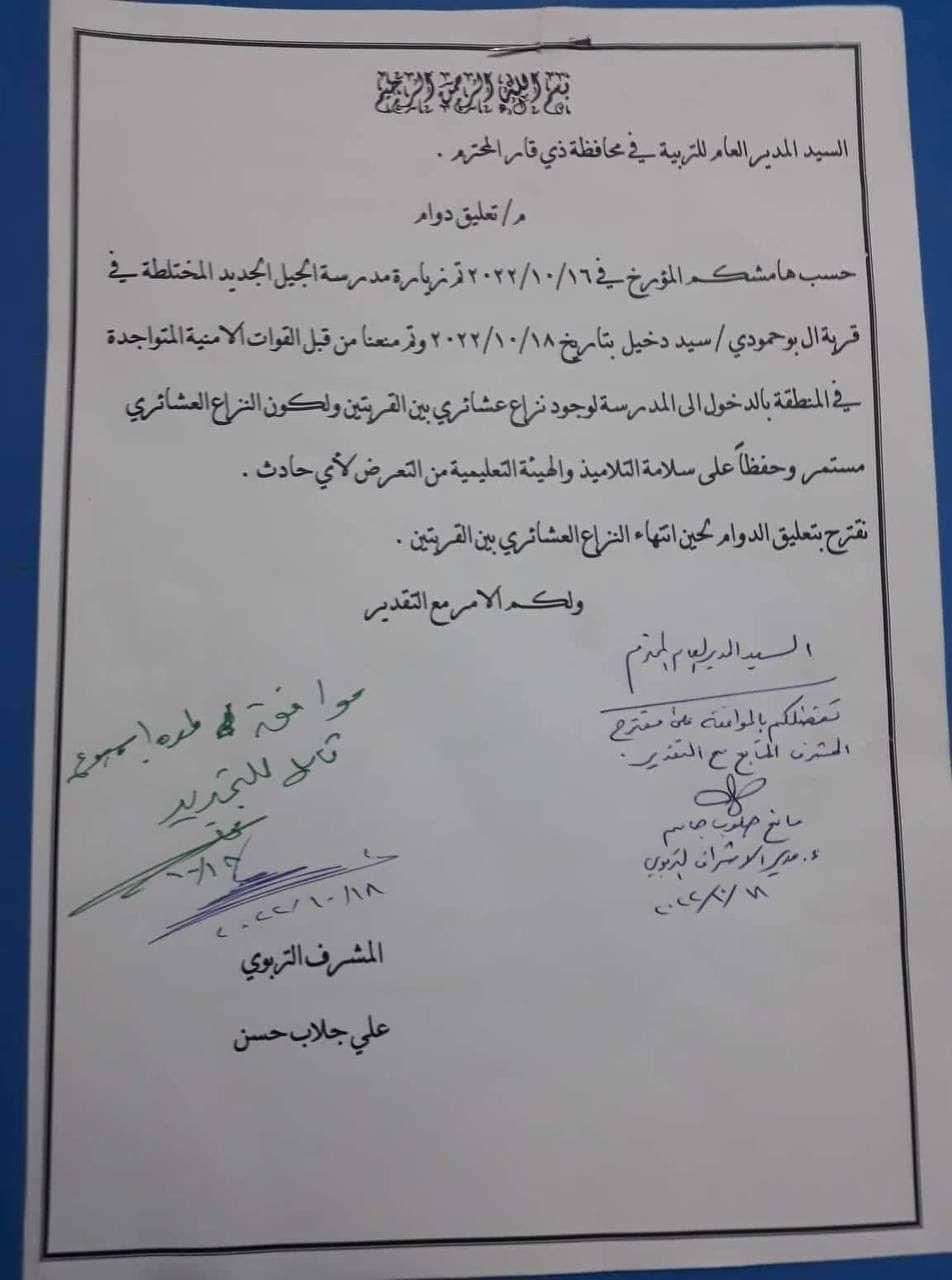 بسم الله الرحمن الرحيم
السيد المدير العام للتربية في محافظة ذي قار المحترم .
م/ تعليق دوام
حسب هامشكم المؤرخ في ٢٠٢٢/١٠/١٦ تم زيارة مدرسة الجيل الجديد المختلطة في
قرية ال بوحمودي / سيد دخيل بتاريخ ٢٠٢٢/١٠/١٨ وتم منعنا من قبل القوات الامنية المتواجدة
في المنطقة بالدخول الى المدرسة لوجود نزاع عشائري بين القريتين ولكون النزاع العشائري
مستمر وحفظاً على سلامة التلاميذ والهيئة التعليمية من التعرض لأي حادث .
نقترح بتعليق الدوام لحين انتهاء النزاع العشائري بين القريتين .
ولكم الامر مع التقدير
السيد المدير العام المحترم
تفضلكم بالموافقة على مقترح
المشرف المتابع مع التقدير .
جاسم
م. مدير الاشراف التربوي
٢٠٢٢/١٠/١٨
موافقة لمدة اسبوع
قابل للتجديد
١٠/١٨
٢٠٢٢/١٠/١٨
المشرف التربوي
علي جلاب حسن